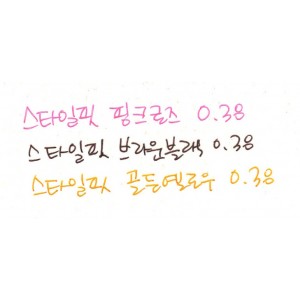 스타일핏 핑크로즈 0.38
스타일핏 브라운블랙 0.38
스타일핏 골든옐로우 0.38